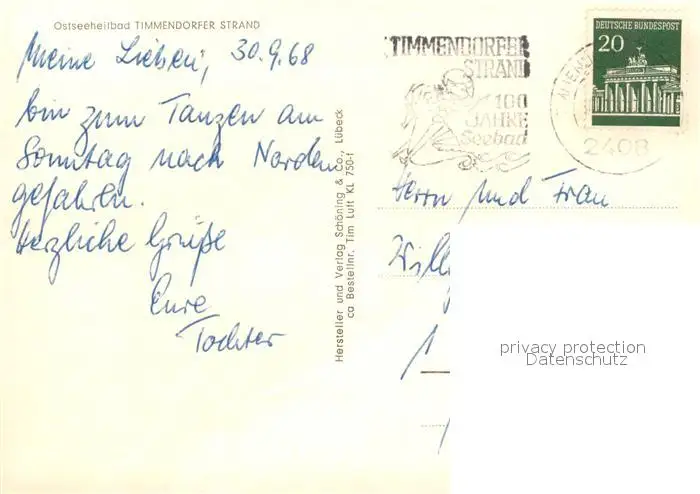 Ostseeheilbad TIMMENDORFER STRAND
Meine Lieben, 30.9.68
bin zum Tanzen am
Sonntag nach Norden
gefahren.
Herzliche Grüße
Eure
Tochter
Hersteller und Verlag Schöning & Co., Lübeck
ca Bestellnr. Tim Luft KL 750-f
TIMMENDORFER
STRAND
100
JAHRE
Seebad
2408
DEUTSCHE BUNDESPOST
20
Herrn und Frau
Will
privacy protection
Datenschutz